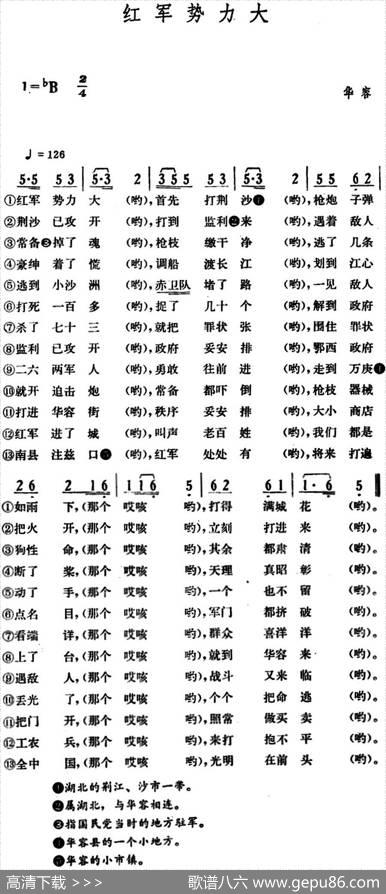 红军势力大
1=♭B 2/4
华容
♩=126
5·5 5 3 | 5·3 2 | 3 5 5 5 3 | 5·3 2 | 5 5 6 2 |
①红军 势力 大 (哟),首先 打荆 沙❶ (哟),枪炮 子弹
②荆沙 已攻 开 (哟),打到 监利❷来 (哟),遇着 敌人
③常备❸掉了 魂 (哟),枪枝 缴干 净 (哟),逃了 几条
④豪绅 着了 慌 (哟),调船 渡长 江 (哟),划到 江心
⑤逃到 小沙 洲 (哟),赤卫队 堵了 路 (哟),一见 敌人
⑥打死 一百 多 (哟),捉了 几十 个 (哟),解到 政府
⑦杀了 七十 三 (哟),就把 罪状 张 (哟),围住 罪状
⑧监利 已攻 开 (哟),政府 妥安 排 (哟),鄂西 政府
⑨二六 两军 人 (哟),勇敢 往前 进 (哟),走到 万庾❹
⑩就开 迫击 炮 (哟),常备 都吓 倒 (哟),枪枝 器械
⑪打进 华容 街 (哟),秩序 妥安 排 (哟),大小 商店
⑫红军 进了 城 (哟),叫声 老百 姓 (哟),我们 都是
⑬南县 注兹 口❺ (哟),红军 处处 有 (哟),将来 打遍
2 6 2 1 6 | 1 1 6 5 | 6 2 6 1 | 1·6 5 ‖
①如雨 下,(那个 哎咳 哟),打得 满城 花 (哟)。
②把火 开,(那个 哎咳 哟),立刻 打进 来 (哟)。
③狗性 命,(那个 哎咳 哟),其余 都肃 清 (哟)。
④断了 桨,(那个 哎咳 哟),天理 真昭 彰 (哟)。
⑤动了 手,(那个 哎咳 哟),一个 也不 留 (哟)。
⑥点名 目,(那个 哎咳 哟),军门 都挤 破 (哟)。
⑦看端 详,(那个 哎咳 哟),群众 喜洋 洋 (哟)。
⑧上了 台,(那个 哎咳 哟),就到 华容 来 (哟)。
⑨遇敌 人,(那个 哎咳 哟),战斗 又来 临 (哟)。
⑩丢光 了,(那个 哎咳 哟),个个 把命 逃 (哟)。
⑪把门 开,(那个 哎咳 哟),照常 做买 卖 (哟)。
⑫工农 兵,(那个 哎咳 哟),来打 抱不 平 (哟)。
⑬全中 国,(那个 哎咳 哟),光明 在前 头 (哟)。
❶湖北的荆江、沙市一带。
❷属湖北,与华容相连。
❸指国民党当时的地方驻军。
❹华容县的一个小地方。
❺华容的小市镇。
高清下载 >>> 歌谱八六 www.gepu86.com